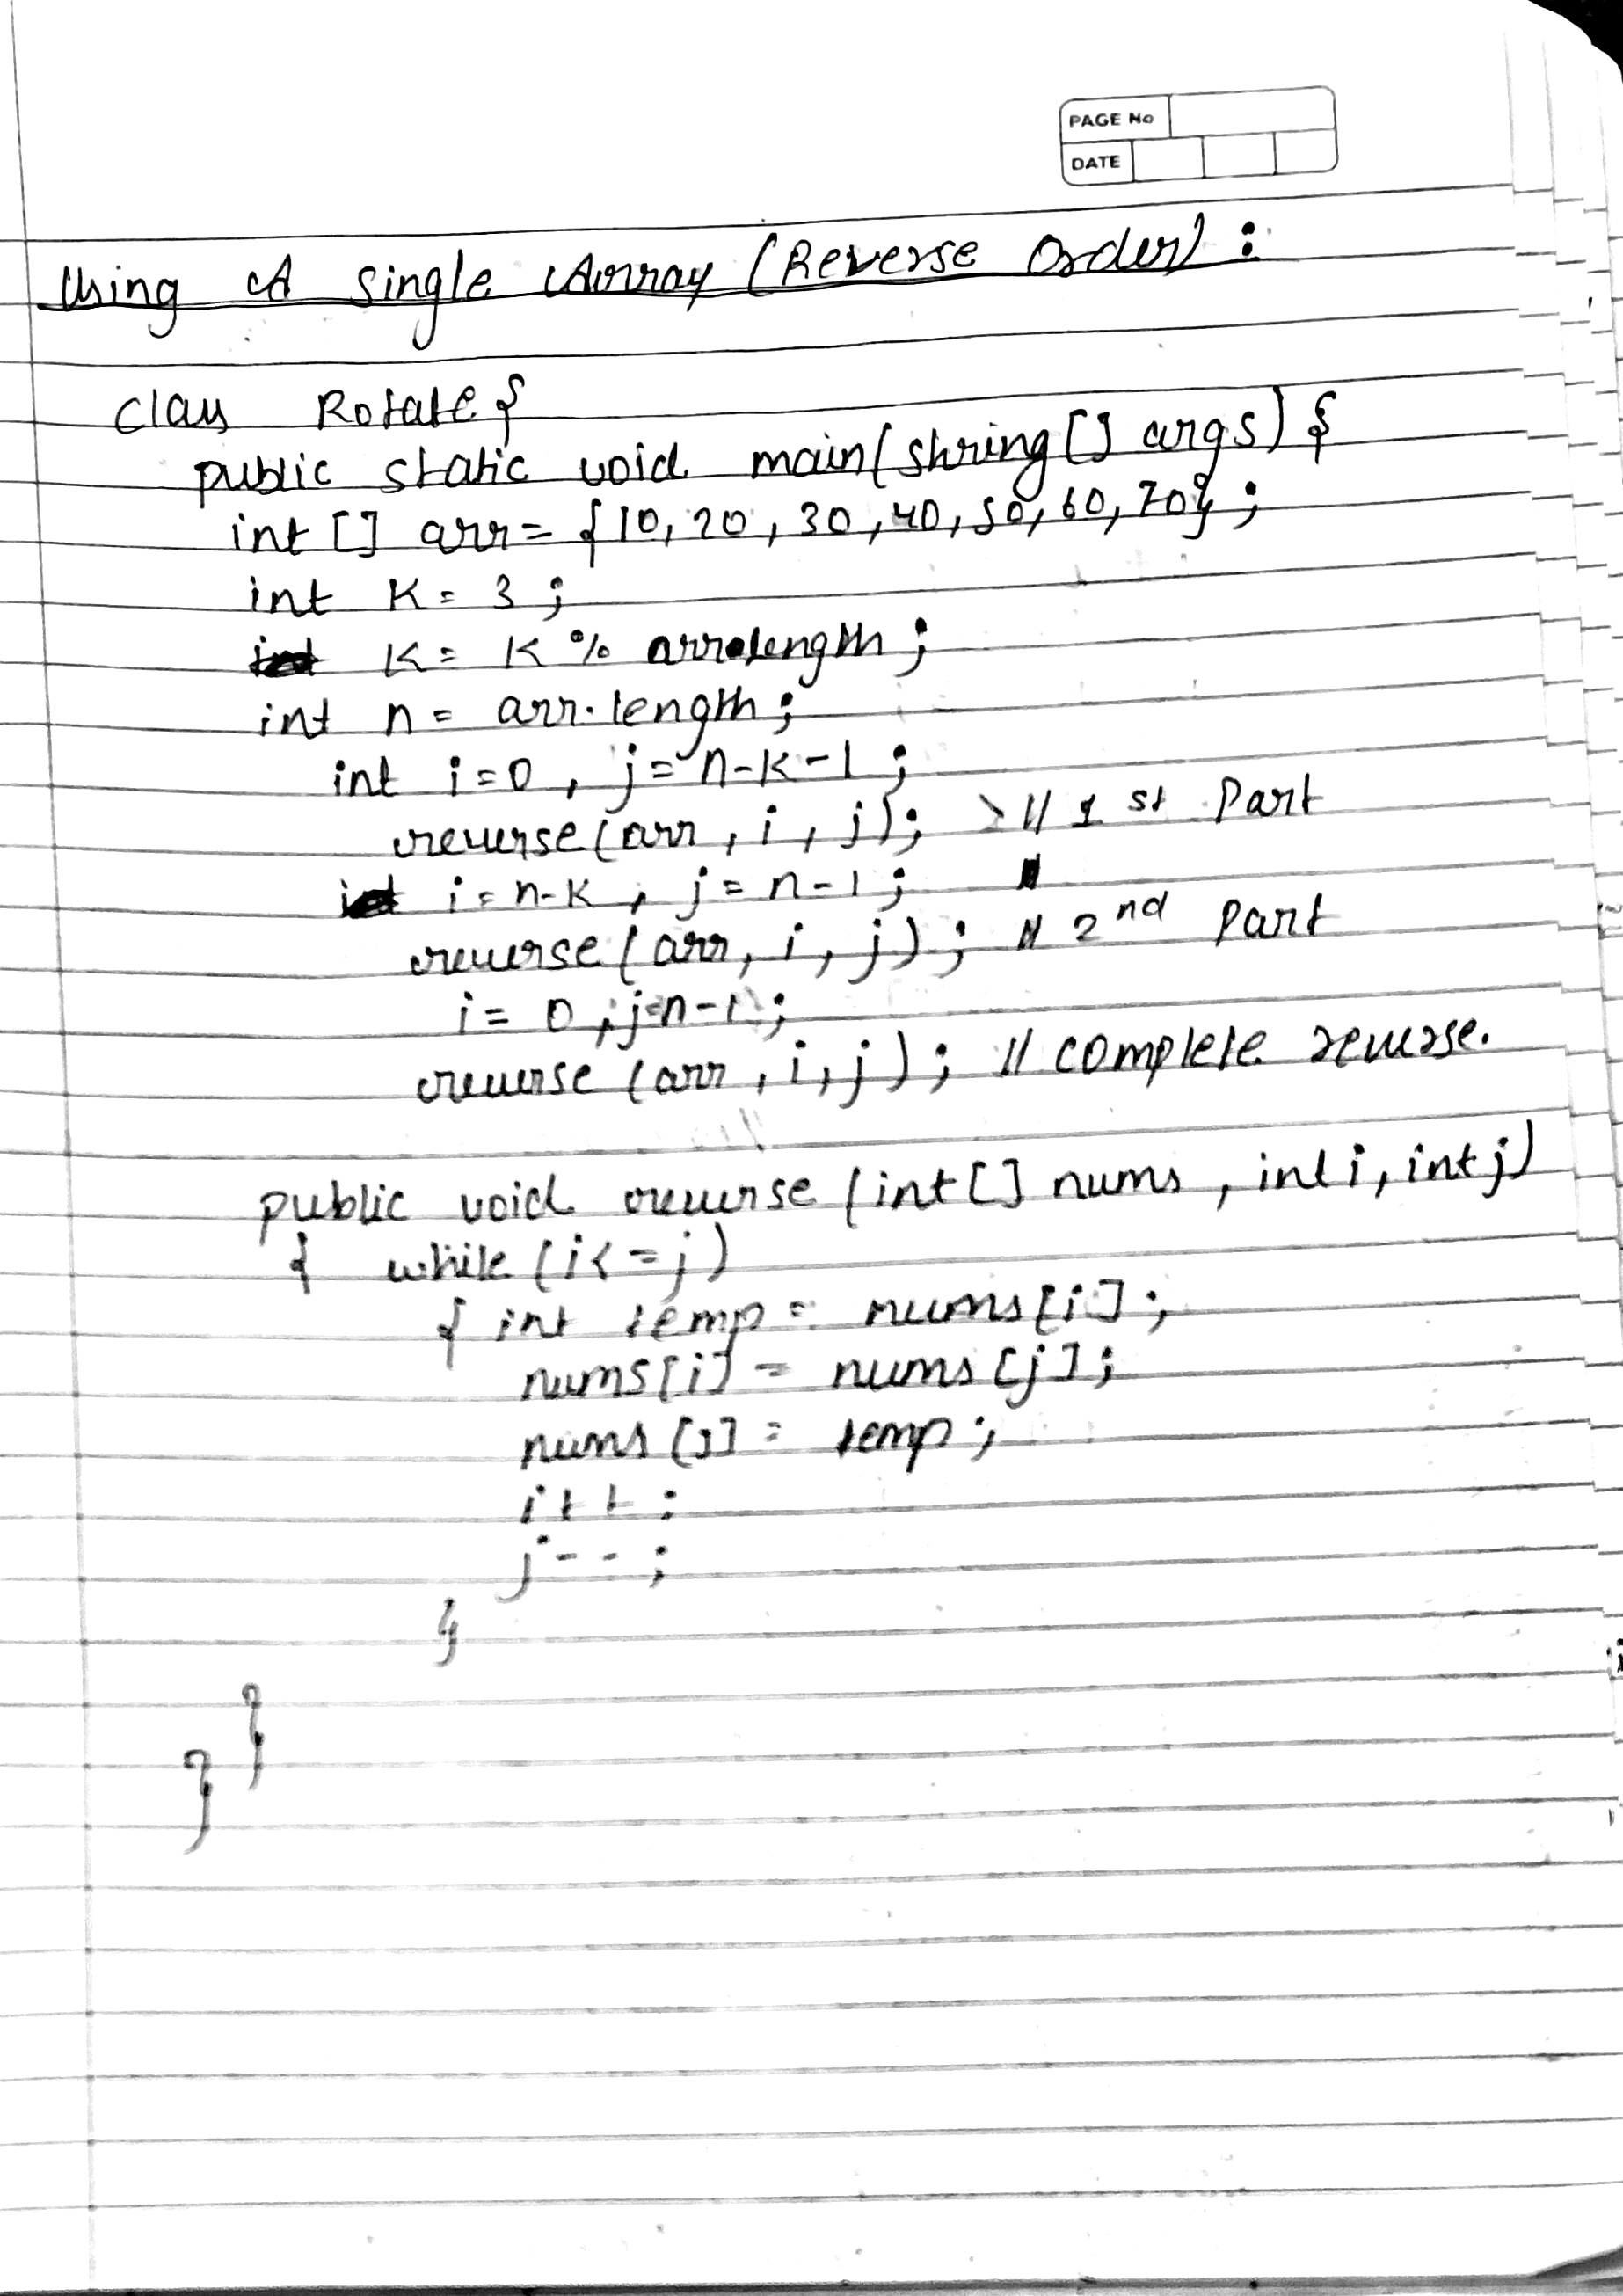 PAGE No
DATE
Using A Single Array (Reverse Order) :
class Rotate {
public static void main(string [] args) {
int [] arr = {10, 20, 30, 40, 50, 60, 70} ;
int K = 3 ;
K = K % arr.length ;
int n = arr.length ;
int i=0 , j= n-k-1 ;
reverse(arr , i , j) ; // 1 st Part
i = n-K , j = n-1 ;
reverse (arr, i, j) ; // 2nd Part
i = 0 ; j=n-1 ;
reverse (arr , i, j) ; // complete reverse.
public void reverse (int [] nums , int i, int j)
{ while (i<=j)
{ int temp = nums[i] ;
nums[i] = nums [j] ;
nums [j] = temp ;
i++ ;
j-- ;
}
}
}